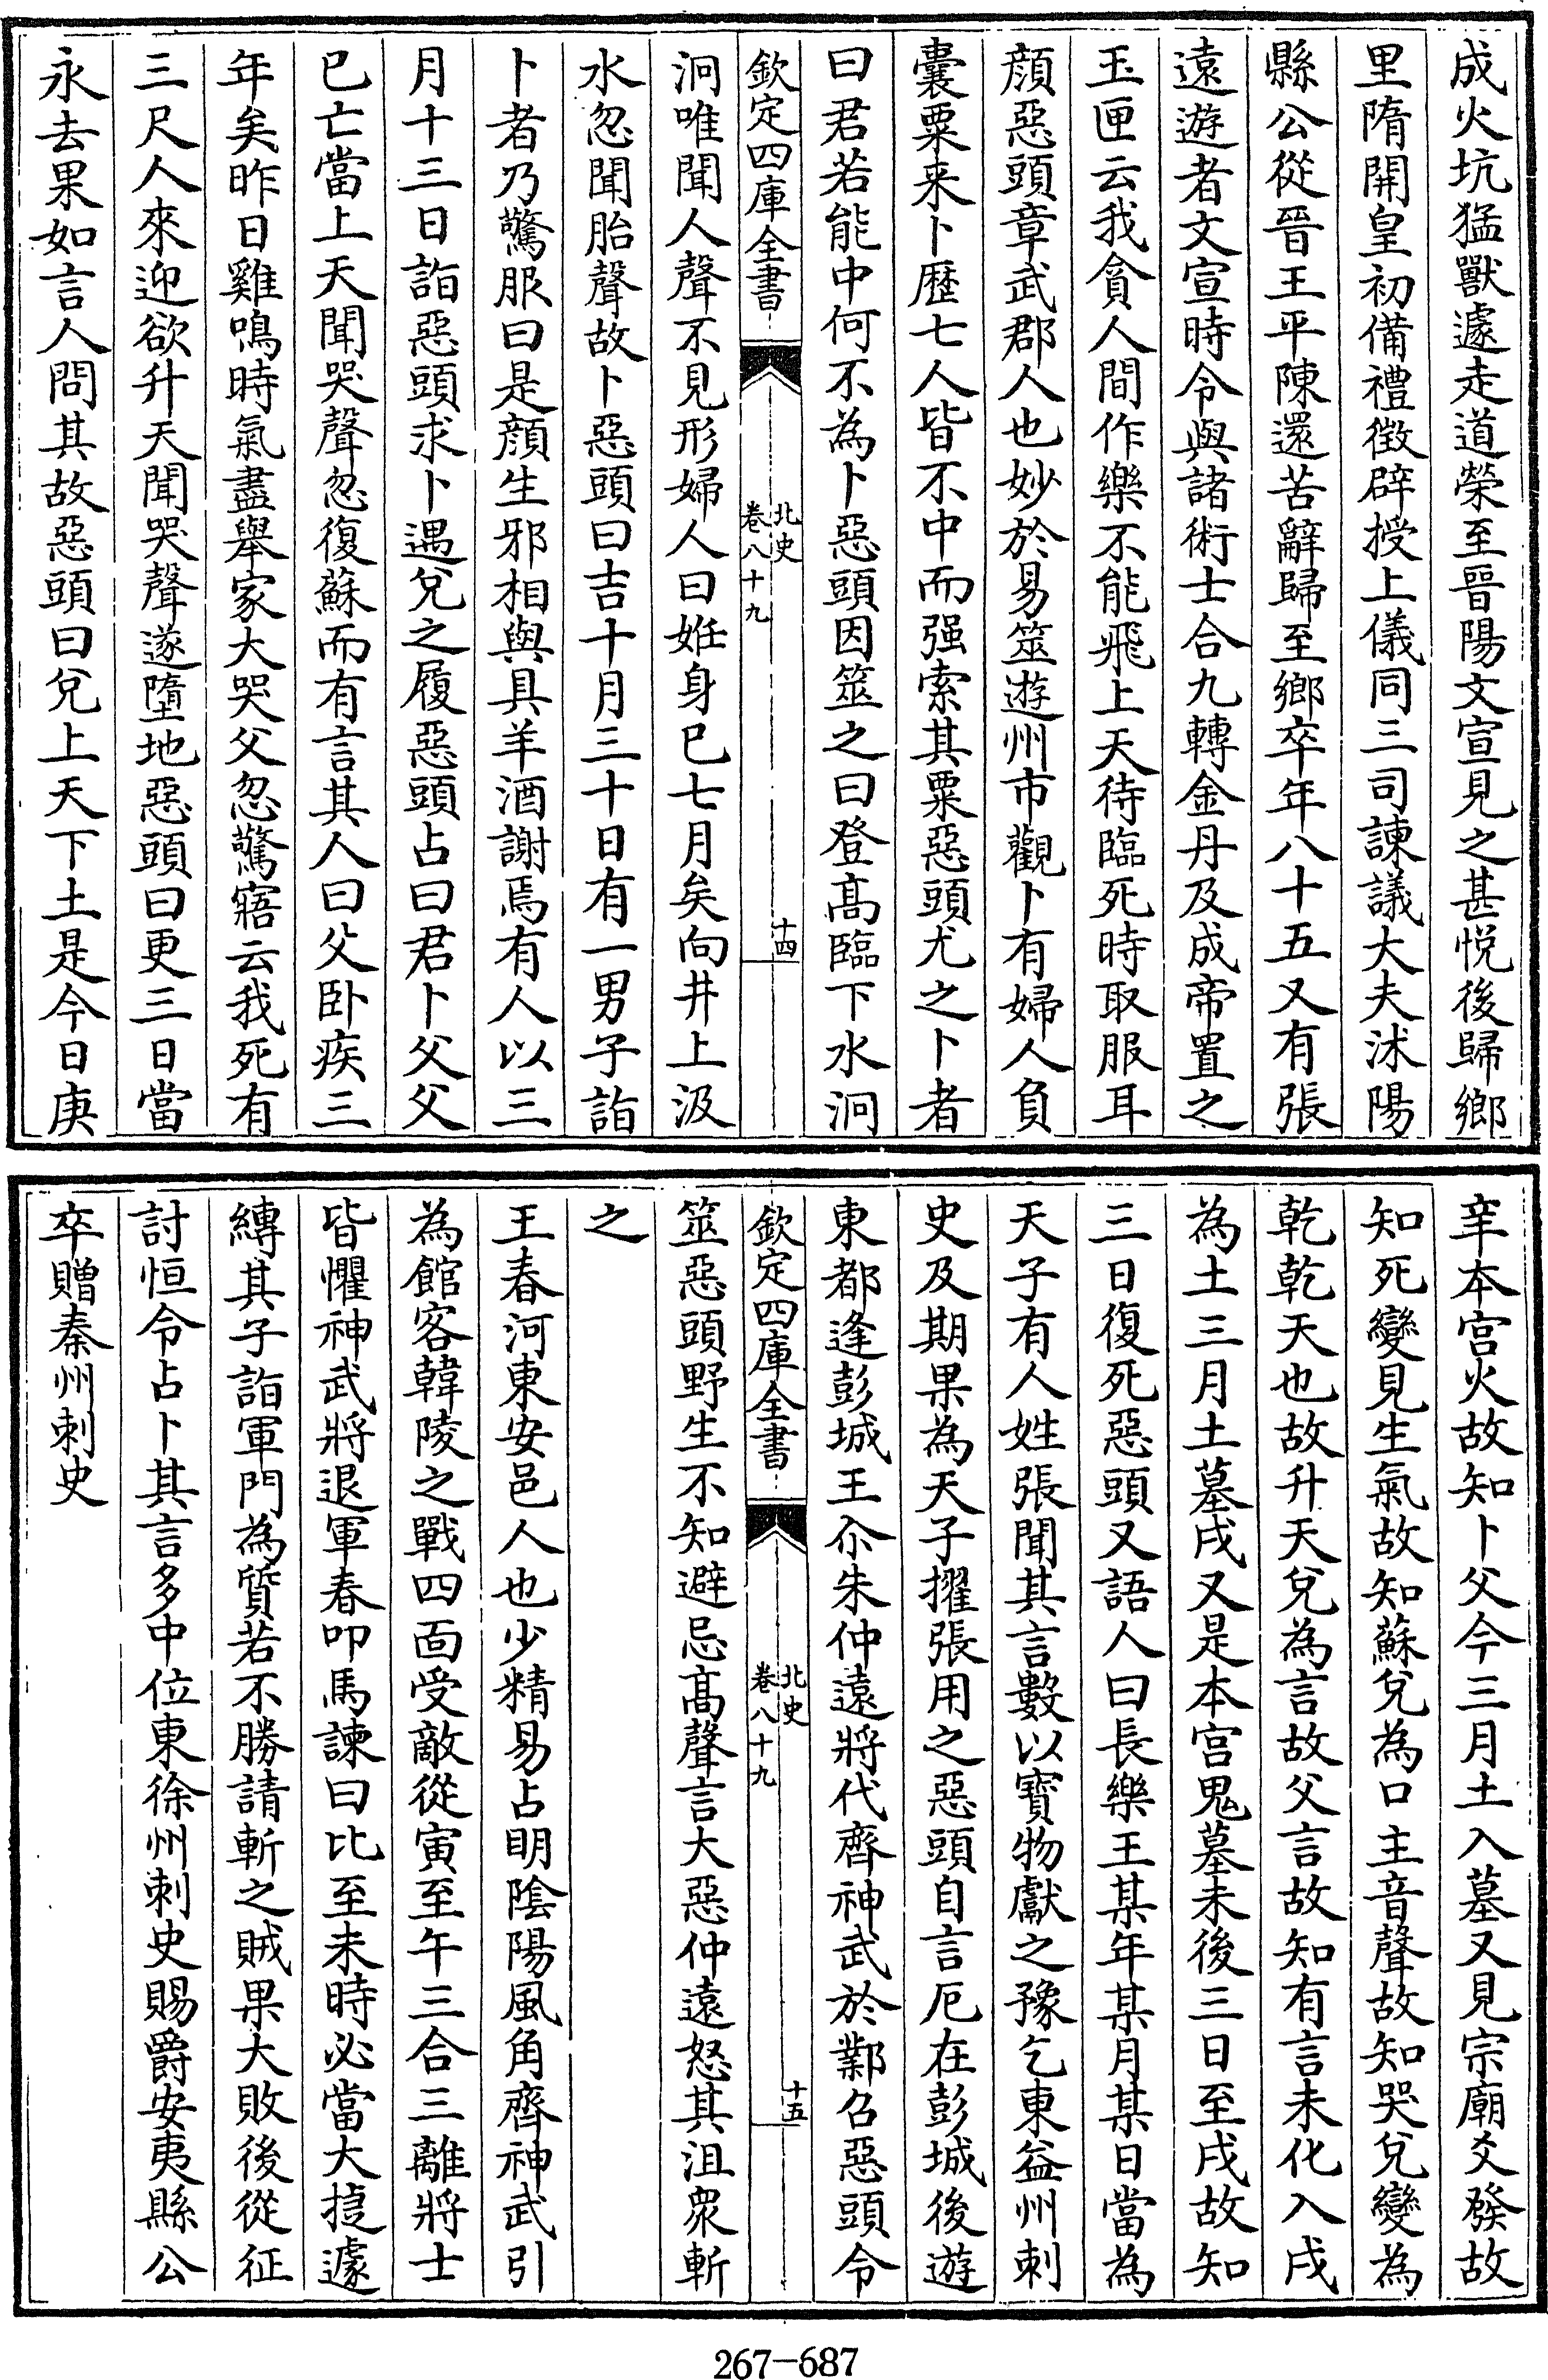 成火坑猛獸遽走道榮至晉陽文宣見之甚悅後歸鄉
里隋開皇初備禮徵辟授上儀同三司諫議大夫沭陽
縣公從晉王平陳還苦辭歸至鄉卒年八十五又有張
遠遊者文宣時令與諸術士合九轉金丹及成帝置之
玉匣云我貪人間作樂不能飛上天待臨死時取服耳
顔惡頭章武郡人也妙於易筮遊州市觀卜有婦人負
囊粟来卜歴七人皆不中而强索其粟惡頭尤之卜者
曰君若能中何不為卜惡頭因筮之曰登髙臨下水泂
欽定四庫全書
北史
卷八十九
十四
泂唯聞人聲不見形婦人曰姙身已七月矣向井上汲
水忽聞胎聲故卜惡頭曰吉十月三十日有一男子詣
卜者乃驚服曰是顔生邪相與具羊酒謝焉有人以三
月十三日詣惡頭求卜遇兌之履惡頭占曰君卜父父
已亡當上天聞哭聲忽復蘇而有言其人曰父卧疾三
年矣昨日雞鳴時氣盡舉家大哭父忽驚寤云我死有
三尺人來迎欲升天聞哭聲遂墮地惡頭曰更三日當
永去果如言人問其故惡頭曰兌上天下土是今日庚
辛本宫火故知卜父今三月土入墓又見宗廟爻發故
知死變見生氣故知蘇兌為口主音聲故知哭兌變為
乾乾天也故升天兌為言故父言故知有言未化入戌
為土三月土墓戌又是本宫鬼墓未後三日至戌故知
三日復死惡頭又語人曰長樂王某年某月某日當為
天子有人姓張聞其言數以寳物獻之豫乞東益州刺
史及期果為天子擢張用之惡頭自言厄在彭城後遊
東都逢彭城王尒朱仲遠將代齊神武於鄴召惡頭令
欽定四庫全書
北史
卷八十九
十五
筮惡頭野生不知避忌髙聲言大惡仲遠怒其沮衆斬
之
王春河東安邑人也少精易占明陰陽風角齊神武引
為館客韓陵之戰四面受敵從寅至午三合三離將士
皆懼神武將退軍春叩馬諫曰比至未時必當大捷遽
縛其子詣軍門為質若不勝請斬之賊果大敗後從征
討恒令占卜其言多中位東徐州刺史賜爵安夷縣公
卒贈秦州刺史
267-687